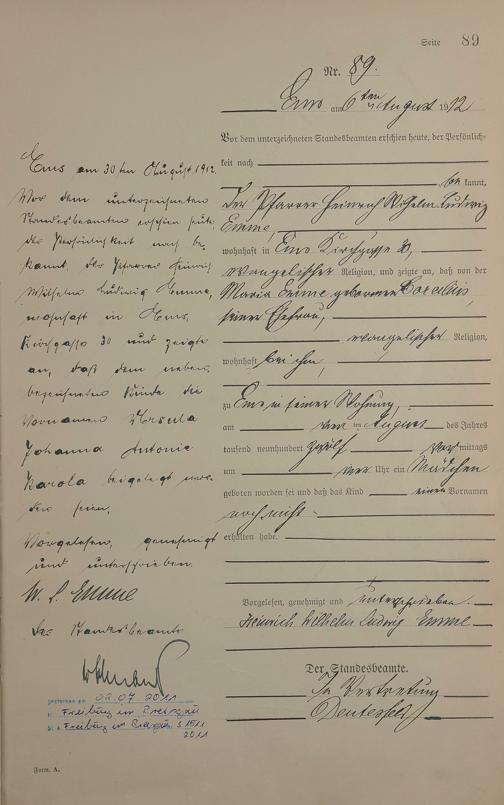 Seite 89
Nr. 89.
Ems am 6ten August 1912
Vor dem unterzeichneten Standesbeamten erschien heute, der Persönlich-
keit nach
be kannt,
der Pfarrer Heinrich Wilhelm Ludwig
Emme,
wohnhaft in Ems Kirchgasse
evangelischer Religion, und zeigte an, daß von der
Maria Emme geborenen
seiner Ehefrau,
evangelischer Religion,
wohnhaft bei ihm,
zu Ems in seiner Wohnung,
am ten August des Jahres
tausend neunhundert zwölf Vor mittags
um Uhr ein Mädchen
geboren worden sei und daß das Kind einen Vornamen
noch nicht
erhalten habe.
Vorgelesen, genehmigt und unterschrieben.
Heinrich Wilhelm Ludwig Emme
Der Standesbeamte.
In Vertretung
Ems am 30ten August 1912.
Vor dem unterzeichneten
Standesbeamten erschien heute
der Persönlichkeit nach be-
kannt, der Pfarrer Heinrich
Wilhelm Ludwig Emme,
wohnhaft in Ems,
Kirchgasse 30 und zeigte
an, daß dem neben-
bezeichneten Kinde die
Vornamen Ursula
Johanna Antonie
Karola beigelegt wor-
den seien.
Vorgelesen, genehmigt
und unterschrieben.
W. L. Emme
Der Standesbeamte
gestorben am 02.07 2011
in Freiburg im Breisgau
St. A. Freiburg im Breisgau S 1511
2011
Form. A.